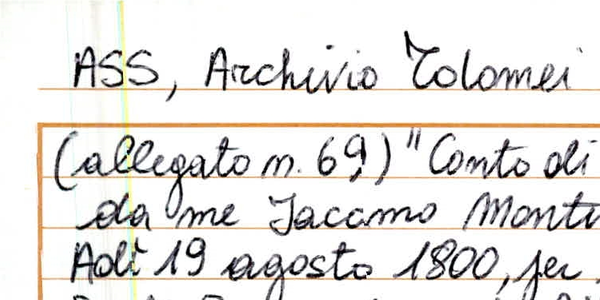 ASS, Archivio Tolomei
(allegato n. 69) "Conto di
da me Jacomo Monti
Adì 19 agosto 1800, per